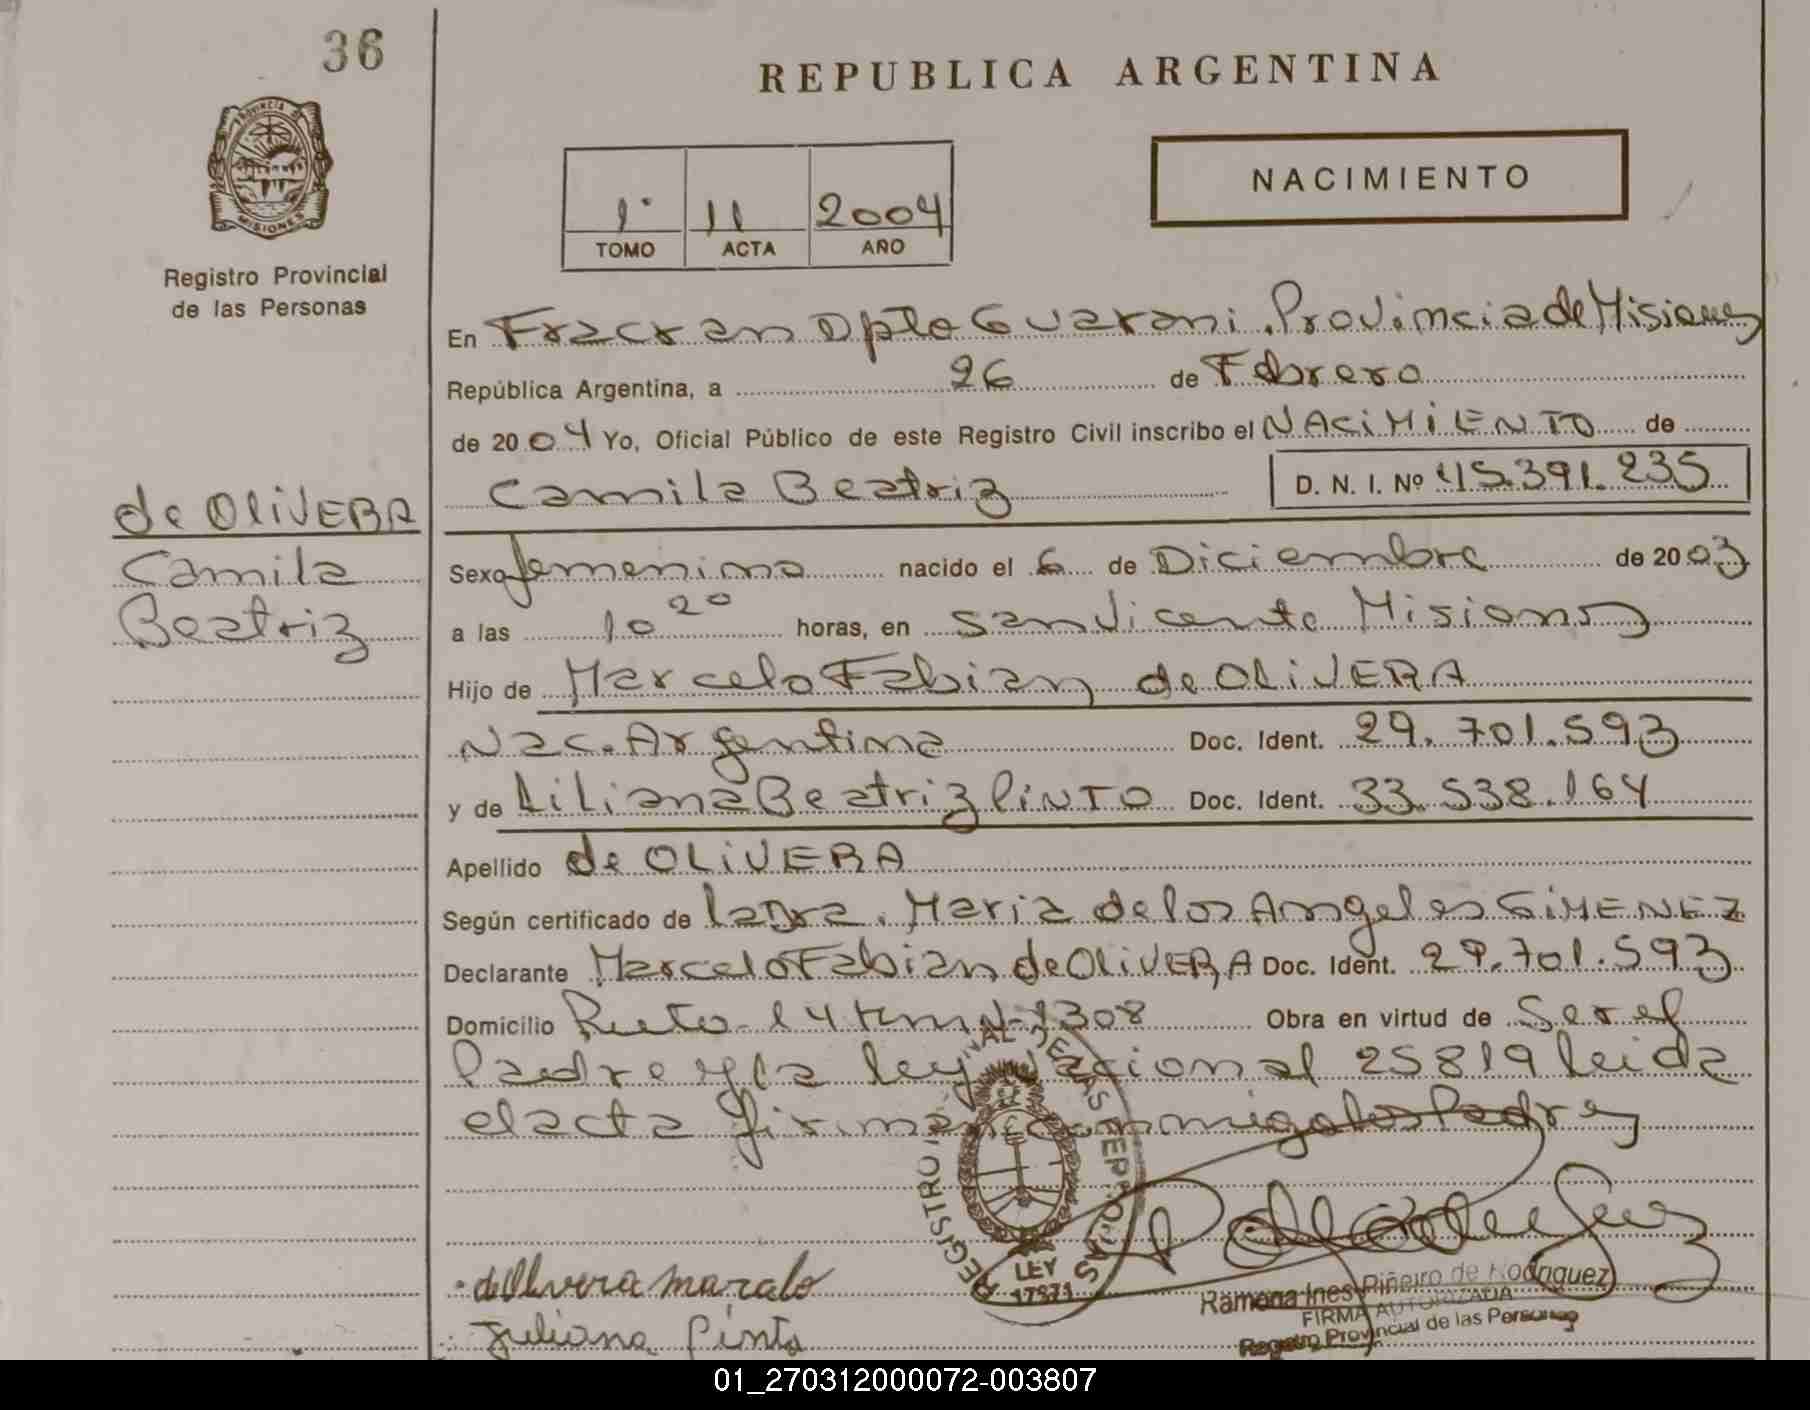 36
REPUBLICA ARGENTINA
PROVINCIA DE
MISIONES
Registro Provincial
de las Personas
1º 11 2004
TOMO ACTA AÑO
NACIMIENTO
En Fracran Dpto Guarani. Provincia de Misiones
República Argentina, a 26 de Febrero
de 2004 Yo, Oficial Público de este Registro Civil inscribo el NACIMIENTO de
Camila Beatriz D. N. I. Nº 45.391.235
de OLIVERA
Camila
Beatriz
Sexo femenino nacido el 6 de Diciembre de 2003
a las 10 20 horas, en San Vicente Misiones
Hijo de Marcelo Fabian de OLIVERA
Nac. Argentina Doc. Ident. 29.701.593
y de Liliana Beatriz PINTO Doc. Ident. 33.538.164
Apellido de OLIVERA
Según certificado de la Dra. Maria de los Angeles GIMENEZ
Declarante Marcelo Fabian de OLIVERA Doc. Ident. 29.701.593
Domicilio Ruta 14 km Nº 1308 Obra en virtud de Ser el
Padre y la ley Nacional 25819 leida
el acta firman conmigo los Padres
REGISTRO LEY 17671
de Olivera Marcelo
Pinto
Ramona Ines Piñeiro de Rodriguez
FIRMA AUTORIZADA
Registro Provincial de las Personas
01_270312000072-003807